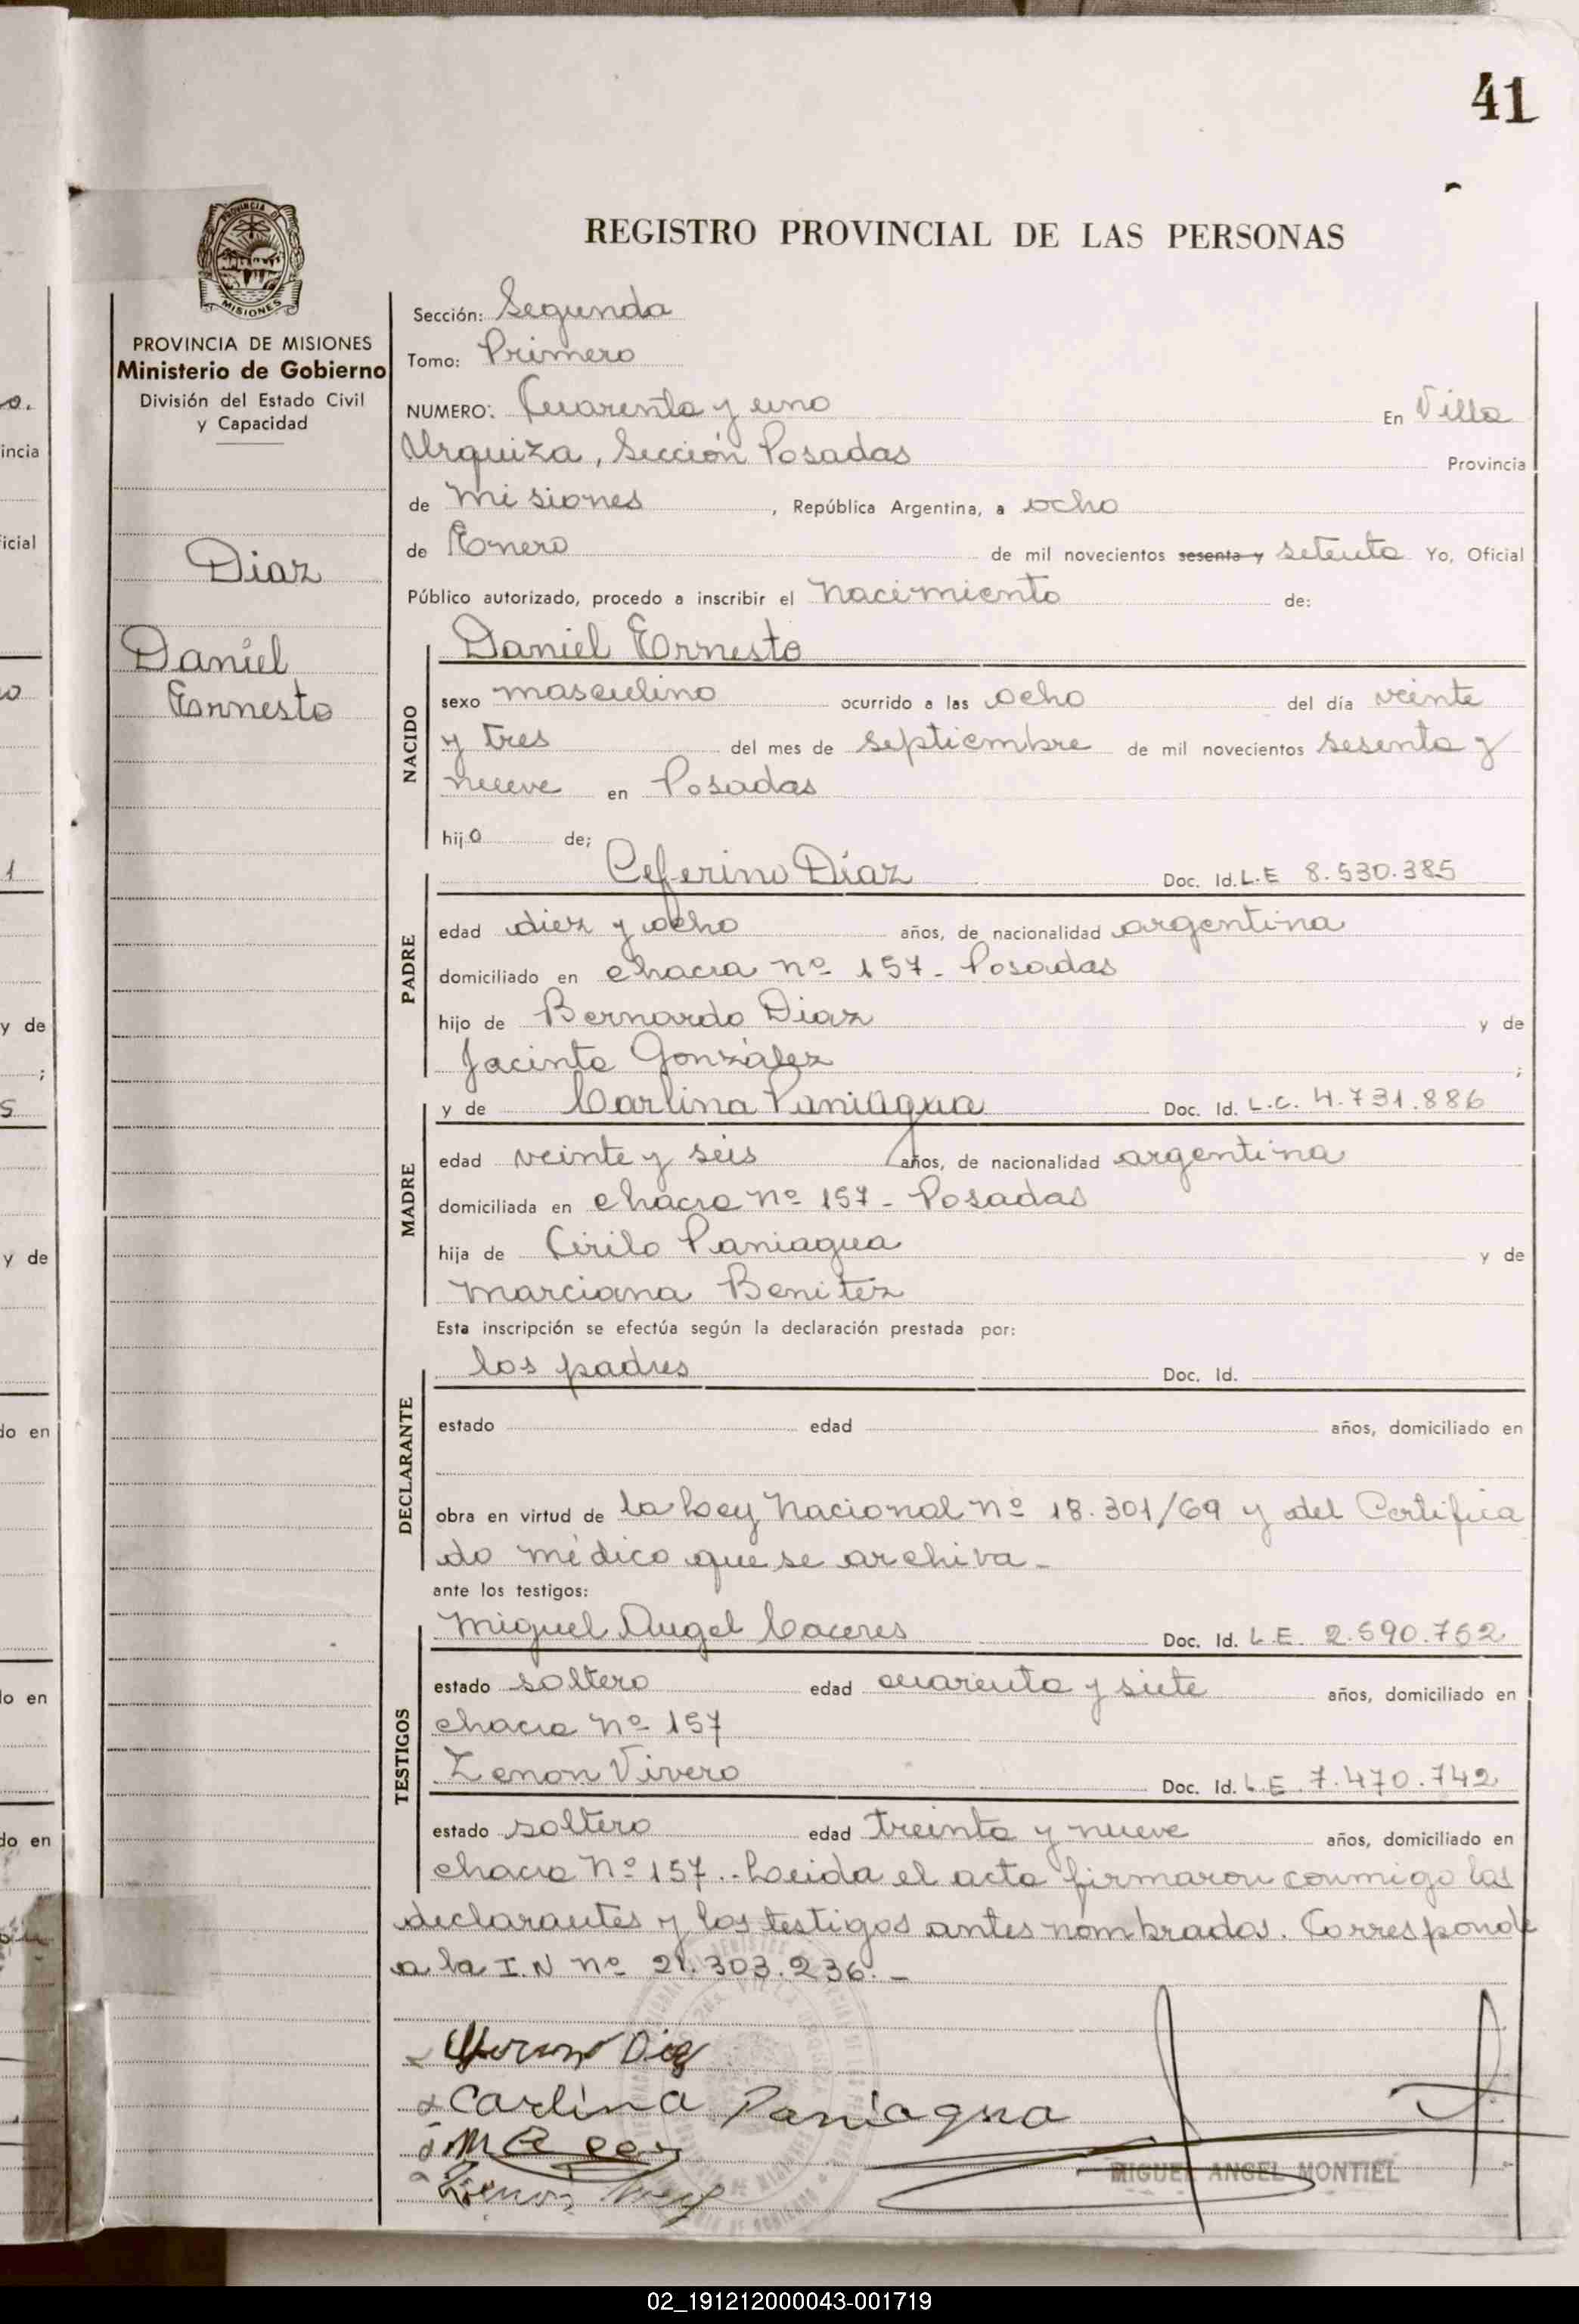 41
REGISTRO PROVINCIAL DE LAS PERSONAS
MISIONES
PROVINCIA DE MISIONES
Ministerio de Gobierno
División del Estado Civil
y Capacidad
Diaz
Daniel
Ernesto
Sección: Segunda
Tomo: Primero
NUMERO: Cuarenta y uno En Villa
Urquiza, Sección Posadas Provincia
de Misiones, República Argentina, a ocho
de Enero de mil novecientos sesenta y setenta Yo, Oficial
Público autorizado, procedo a inscribir el nacimiento de:
NACIDO
Daniel Ernesto
sexo masculino ocurrido a las ocho del día veinte
y tres del mes de septiembre de mil novecientos sesenta y
nueve en Posadas
hijo de;
PADRE
Ceferino Díaz Doc. Id. L.E 8.530.385
edad diez y ocho años, de nacionalidad argentina
domiciliado en chacra nº 157 - Posadas
hijo de Bernardo Diaz y de
Jacinta González ;
MADRE
y de Carlina Paniagua Doc. Id. L.C. 4.731.886
edad veinte y seis años, de nacionalidad argentina
domiciliada en chacra nº 157 - Posadas
hija de Cirilo Paniagua y de
Marciana Benitez
Esta inscripción se efectúa según la declaración prestada por:
DECLARANTE
los padres Doc. Id.
estado edad años, domiciliado en
obra en virtud de la Ley Nacional nº 18.301/69 y del Certifica
do médico que se archiva -
ante los testigos:
TESTIGOS
Miguel Angel Caceres Doc. Id. L.E. 2.590.762
estado soltero edad cuarenta y siete años, domiciliado en
chacra nº 157
Zenon Vivero Doc. Id. L.E. 7.470.742
estado soltero edad treinta y nueve años, domiciliado en
chacra nº 157.- Leida el acta firmaron conmigo los
declarantes y los testigos antes nombrados. Corresponde
a la I.N nº 21.303.236.-
Carlina Paniagua
MIGUEL ANGEL MONTIEL
02_191212000043-001719